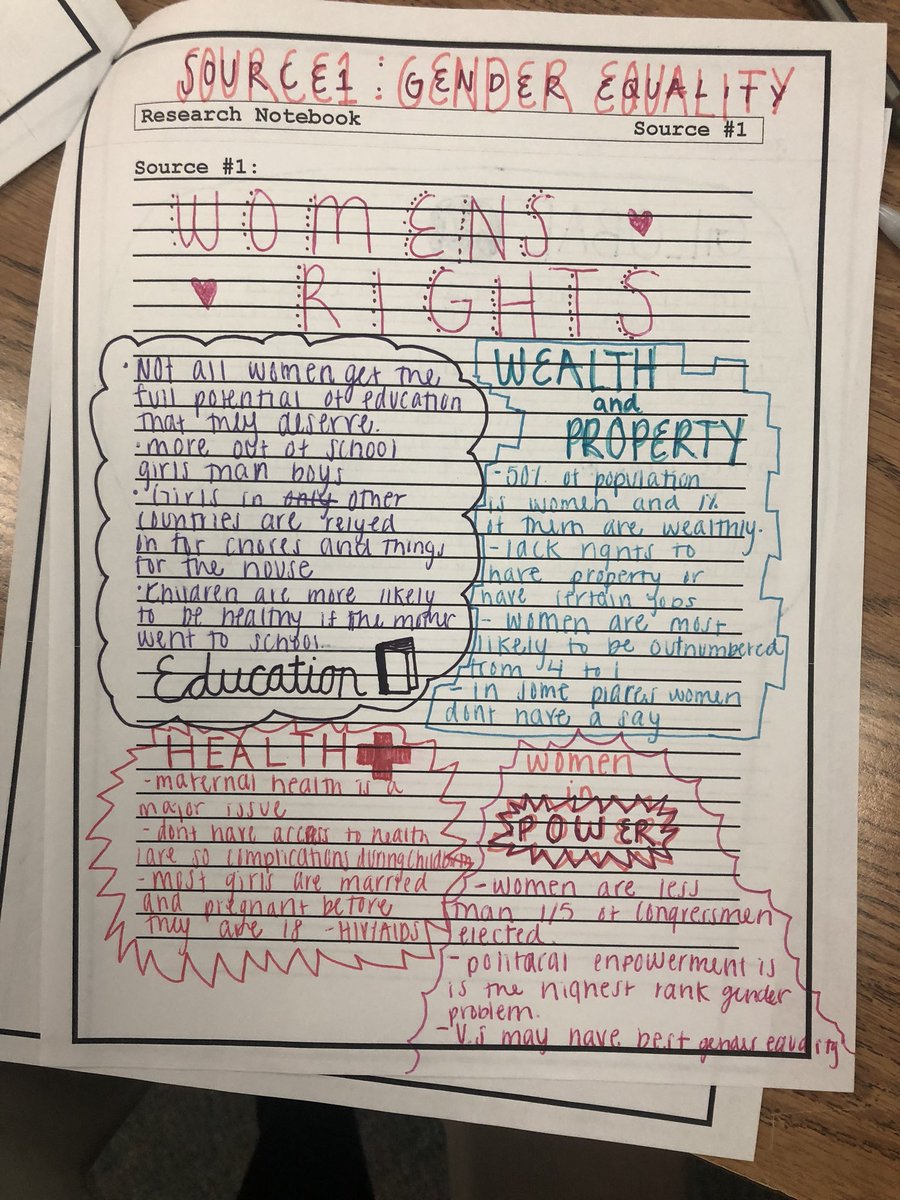 SOURCE 1: GENDER EQUALITY
Research Notebook
Source #1
Source #1:
WOMENS
RIGHTS
• Not all women get the
full potential of education
that they deserve.
• more out of school
girls than boys
• Girls in only other
countries are relyed
on for chores and things
for the house
• Children are more likely
to be healthy if the mother
went to school.
Education
WEALTH
and
PROPERTY
- 50% of population
is women and 1%
of them are wealthly.
- lack rights to
have property or
have certain jobs
- women are most
likely to be outnumbered
from 4 to 1
- in some places women
dont have a say
HEALTH
- maternal health is a
major issue
- dont have access to health
care so complications during childbirth
- most girls are married
and pregnant before
they are 18 - HIV/AIDS
women
in
POWER
- women are less
than 1/5 of congressmen
elected.
- politacal enpowerment is
is the highest rank gender
problem.
- U.S may have best gender equality